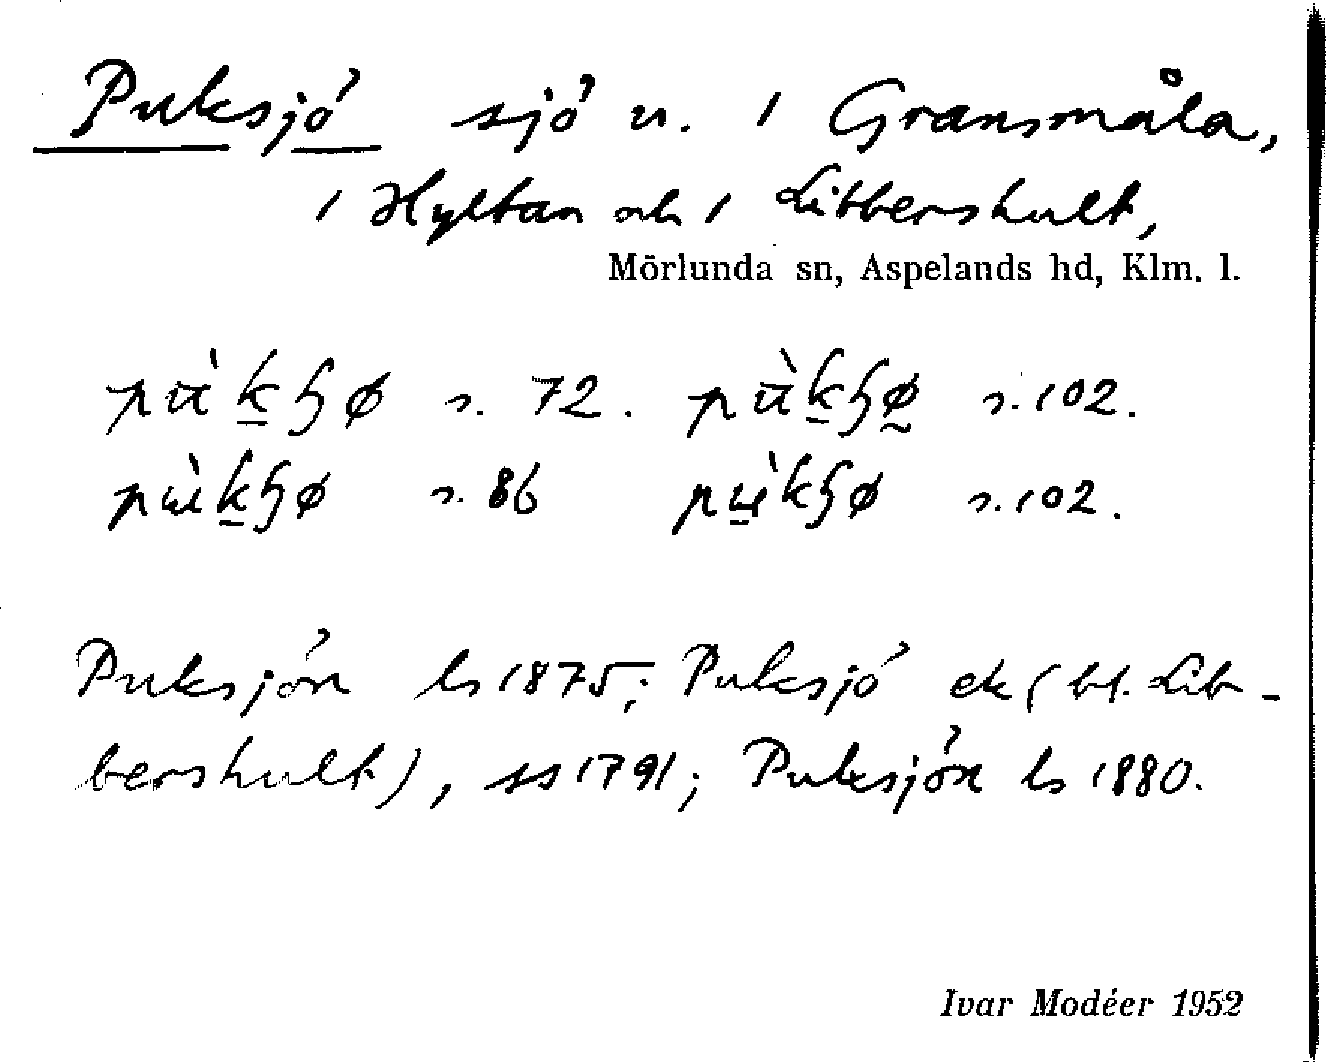 Puksjö sjö u. i Gransmåla,
i Hyltan och i Libbershult,
Mörlunda sn, Aspelands hd, Klm. l.
s. 72. s. 102.
s. 86 s. 102.
Puksjön ls 1875; Puksjö ek (bl. Lib-
bershult), ss 1791; Puksjön ls 1880.
Ivar Modéer 1952